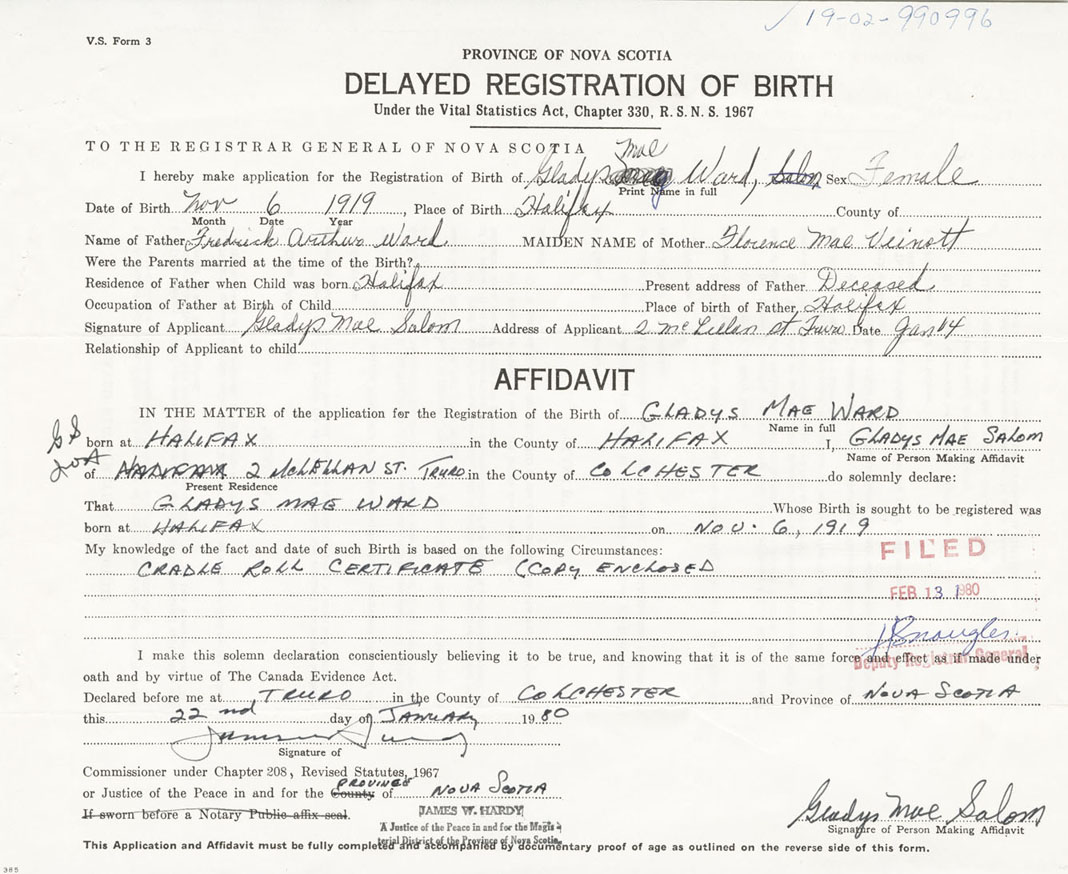 ✓ 19-02-990996
V.S. Form 3
PROVINCE OF NOVA SCOTIA
DELAYED REGISTRATION OF BIRTH
Under the Vital Statistics Act, Chapter 330, R.S.N.S. 1967
TO THE REGISTRAR GENERAL OF NOVA SCOTIA
Mae
I hereby make application for the Registration of Birth of Gladys Ward, Salom Sex Female
Print Name in full
Date of Birth Nov 6 1919, Place of Birth Halifax County of
Month Date Year
Name of Father Fredrick Arthur Ward MAIDEN NAME of Mother Florence Mae Veinott
Were the Parents married at the time of the Birth?
Residence of Father when Child was born Halifax Present address of Father Deceased
Occupation of Father at Birth of Child Place of birth of Father Halifax
Signature of Applicant Gladys Mae Salom Address of Applicant 2 McLellan St Truro Date Jan 14
Relationship of Applicant to child
AFFIDAVIT
IN THE MATTER of the application for the Registration of the Birth of GLADYS MAE WARD
Name in full
GS born at HALIFAX in the County of HALIFAX I, GLADYS MAE SALOM
Name of Person Making Affidavit
of HALIFAX 2 MCLELLAN ST. TRURO in the County of COLCHESTER do solemnly declare:
Present Residence
That GLADYS MAE WARD Whose Birth is sought to be registered was
born at HALIFAX on NOV. 6, 1919
My knowledge of the fact and date of such Birth is based on the following Circumstances:
FILED
CRADLE ROLL CERTIFICATE (COPY ENCLOSED
FEB 13 1980
I make this solemn declaration conscientiously believing it to be true, and knowing that it is of the same force and effect as if made under
Deputy Registrar General
oath and by virtue of The Canada Evidence Act.
Declared before me at TRURO in the County of COLCHESTER and Province of NOVA SCOTIA
this 22nd day of JANUARY 1980
Signature of
Commissioner under Chapter 208, Revised Statutes, 1967
PROVINCE
or Justice of the Peace in and for the County of NOVA SCOTIA
If sworn before a Notary Public affix seal.
JAMES W. HARDY
A Justice of the Peace in and for the Magis-
terial District of the Province of Nova Scotia
Gladys Mae Salom
Signature of Person Making Affidavit
This Application and Affidavit must be fully completed and accompanied by documentary proof of age as outlined on the reverse side of this form.
385